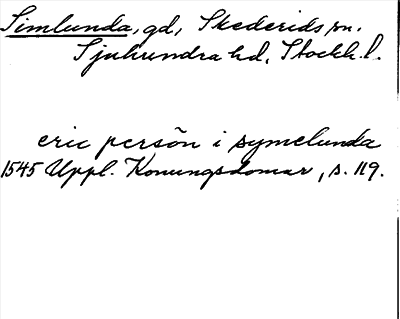 Simlunda, gd, Skederids sn.
Sjuhundra hd, Stockh. l.
eric persōn i symelunda
1545 Uppl. Konungsdomar, s. 119.